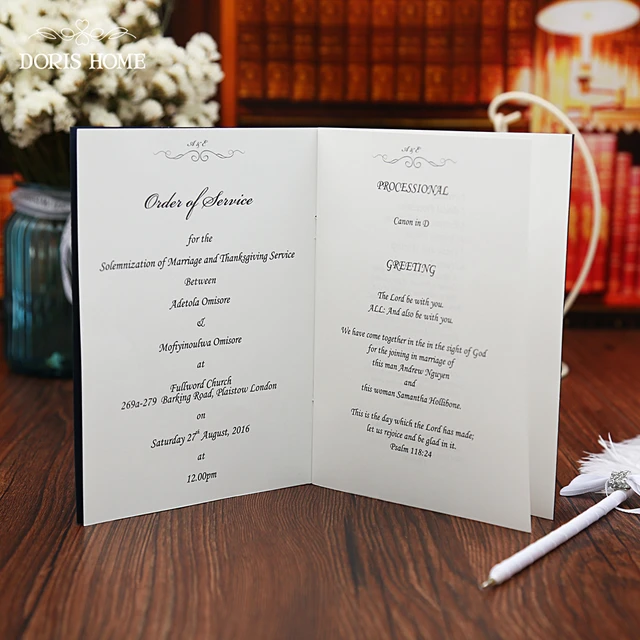 DORIS HOME
A & E
Order of Service
for the
Solemnization of Marriage and Thanksgiving Service
Between
Adetola Omisore
&
Mofiyinoluwa Omisore
at
Fullword Church
269a-279 Barking Road, Plaistow London
on
Saturday 27th August, 2016
at
12.00pm
A & E
PROCESSIONAL
Canon in D
GREETING
The Lord be with you.
ALL: And also be with you.
We have come together in the in the sight of God
for the joining in marriage of
this man Andrew Nguyen
and
this woman Samantha Hollibone.
This is the day which the Lord has made;
let us rejoice and be glad in it.
Psalm 118:24